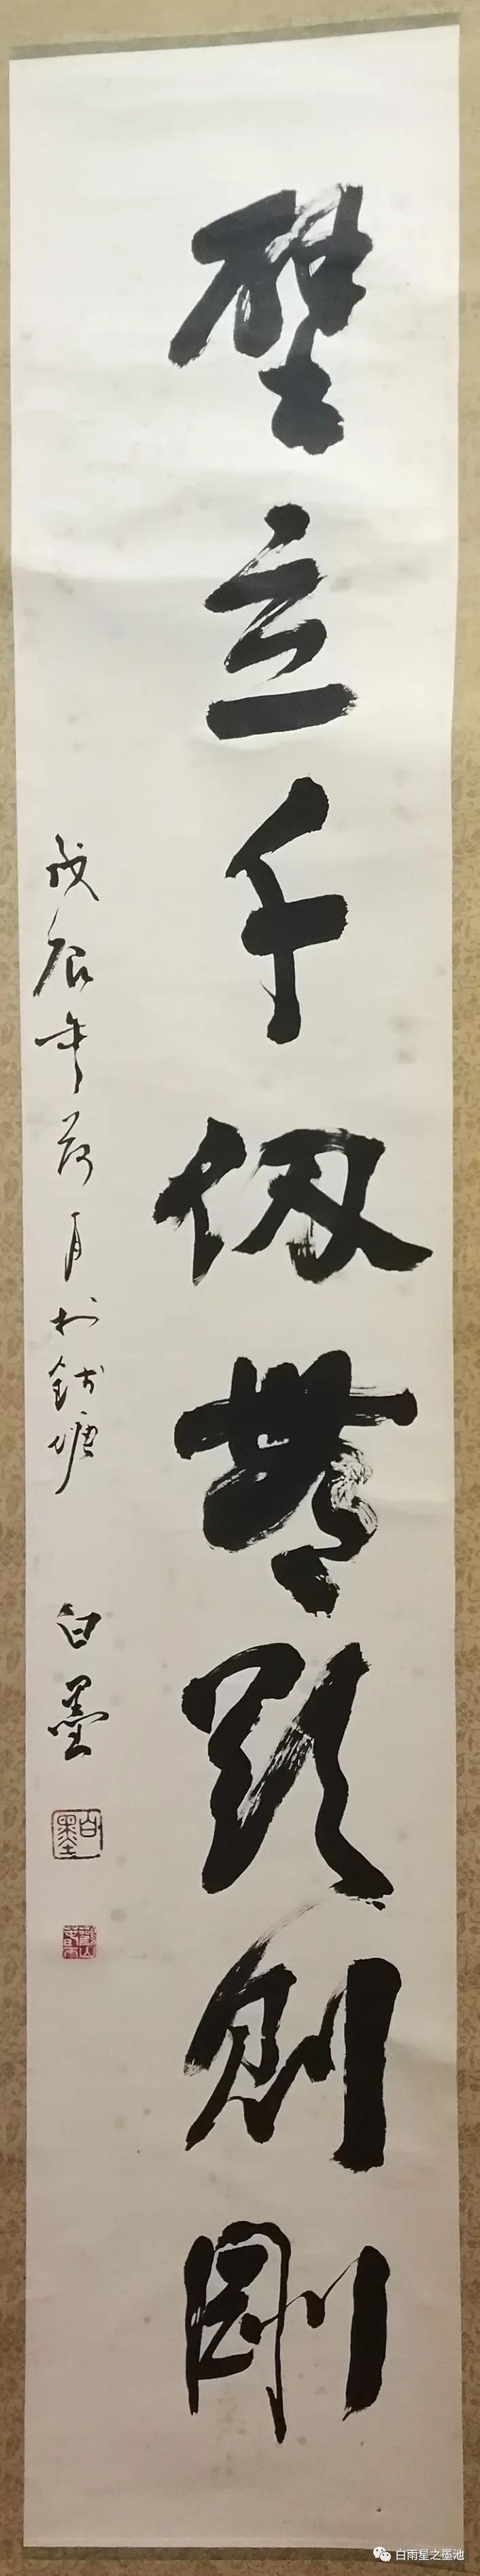 壁立千仞無欲則剛
戊辰年荷月於錢塘
白墨
白墨
白雨星之墨池